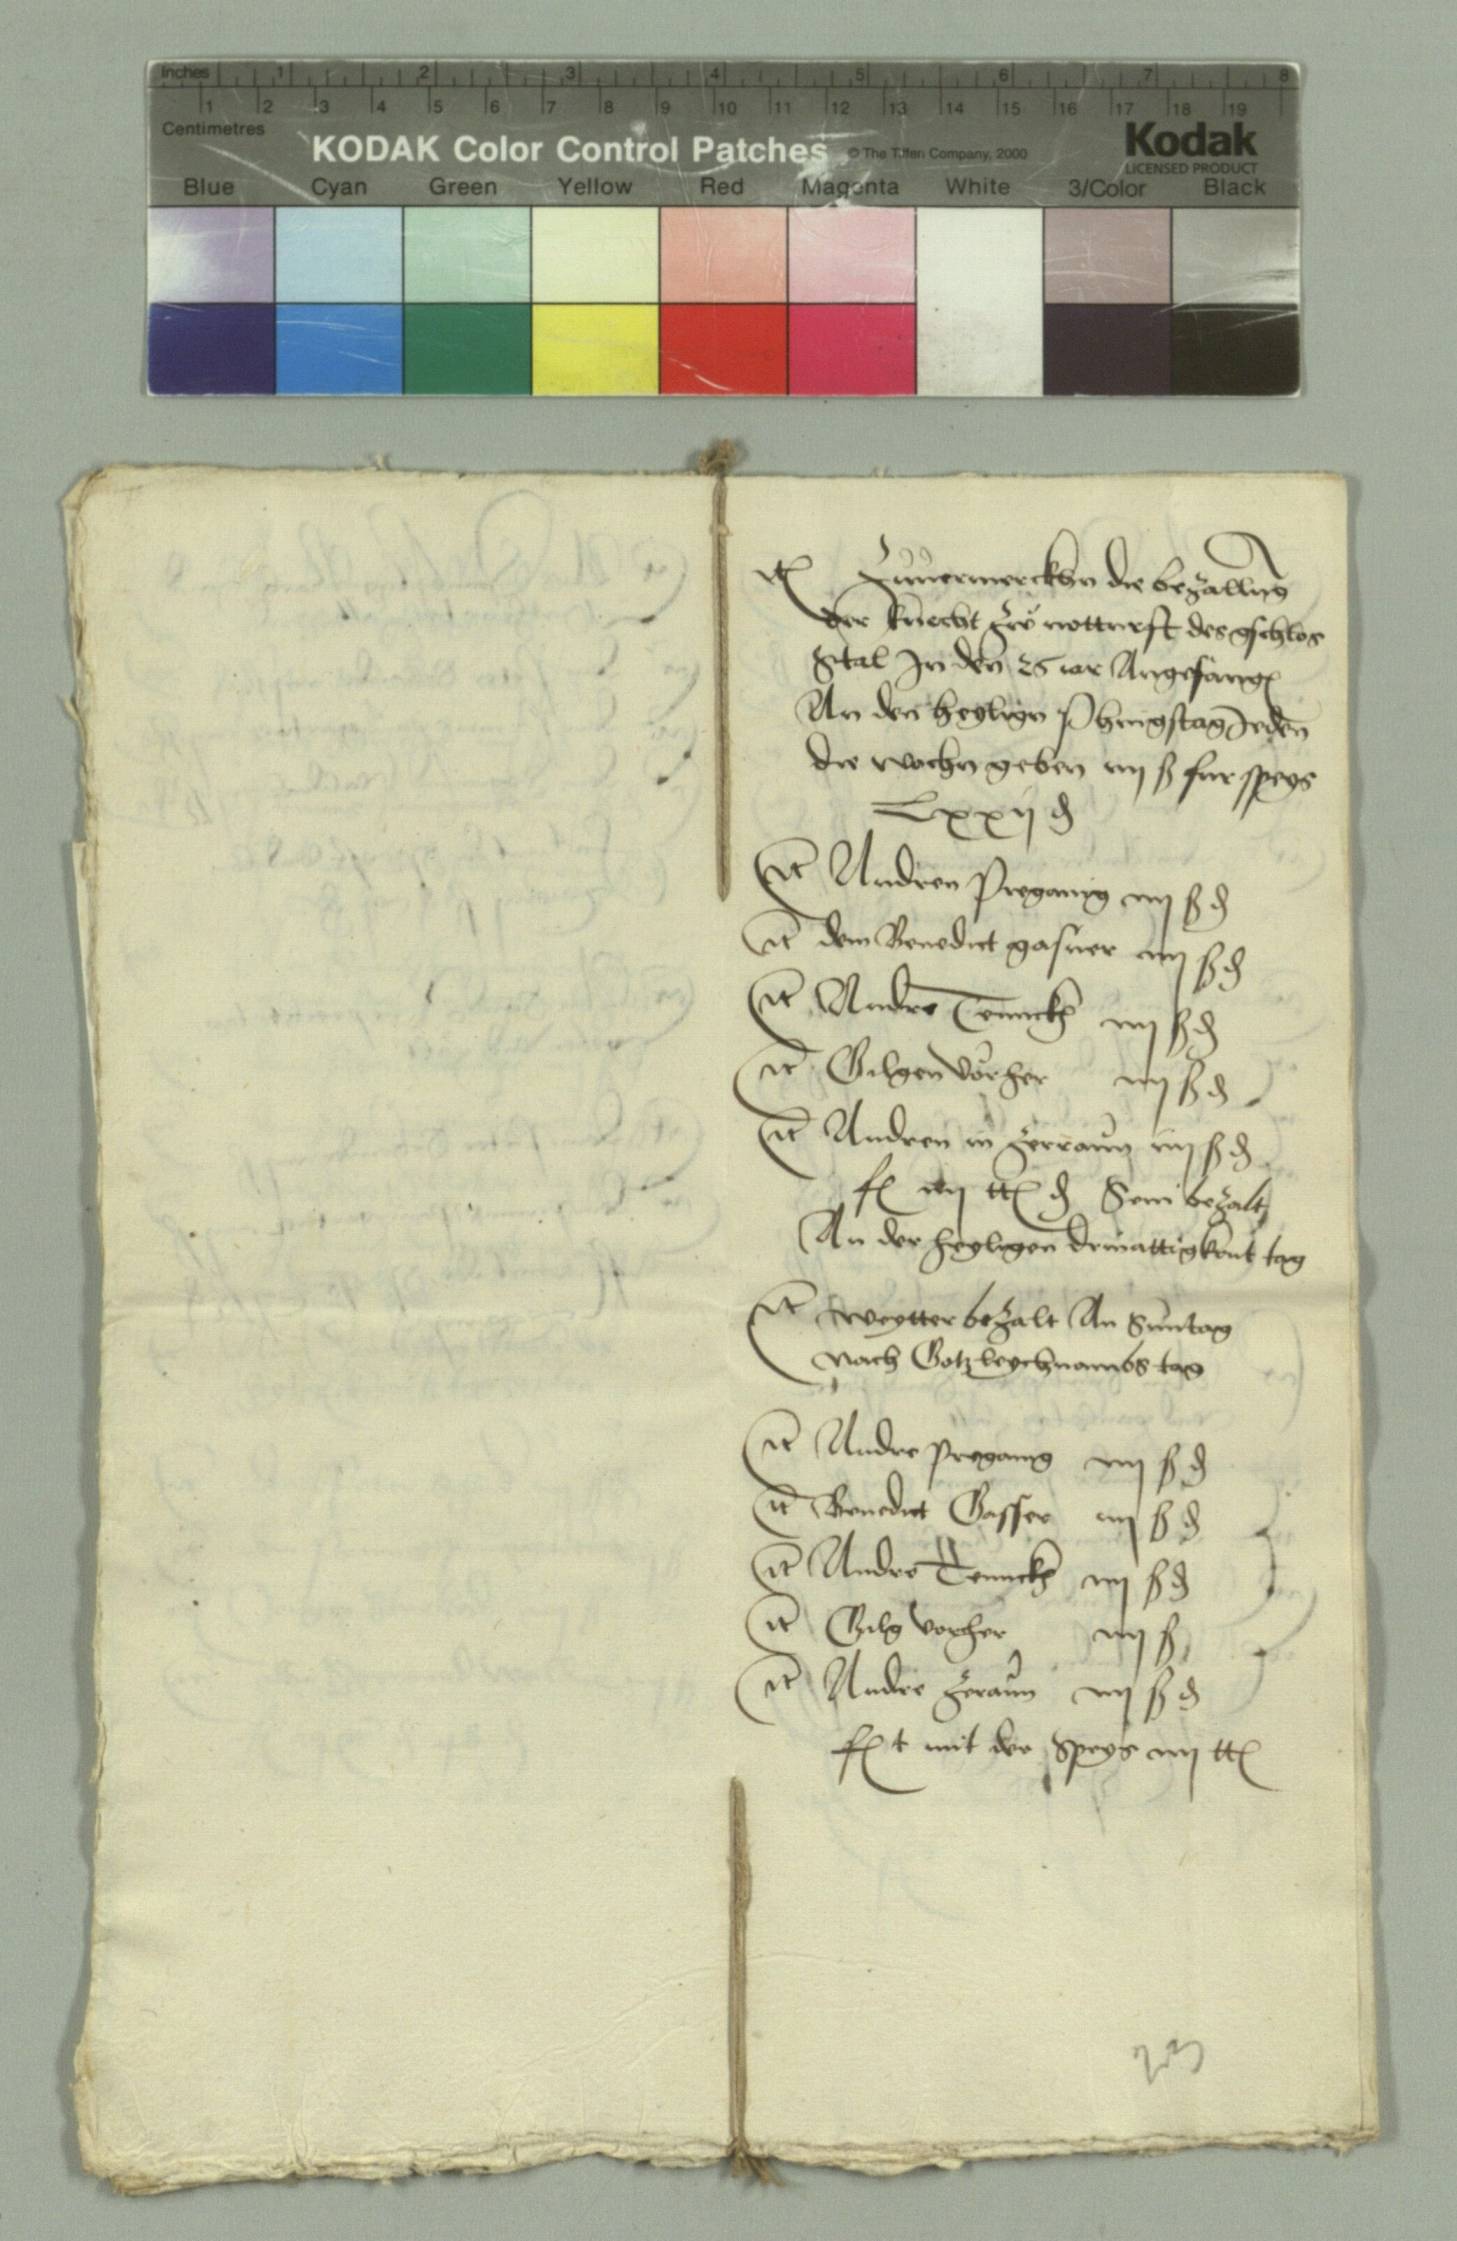 Inches 1 2 3 4 5 6 7 8
1 2 3 4 5 6 7 8 9 10 11 12 13 14 15 16 17 18 19
Centimetres
KODAK Color Control Patches © The Tiffen Company, 2000
Kodak
LICENSED PRODUCT
Blue Cyan Green Yellow Red Magenta White 3/Color Black
It Zuuermerckhn die bezallung
der knecht zw notturfft des gschlos
Stal In den 25 iar Angefang
An den heyligen Phingstag Jeden
die wochn geben iiij ß fur speys
Lxxij d
It Andreen Preganig iiij ß d
It dem Benedict gasser iiij ß d
It Andre iiij ß d
It Gilgen vorher iiij ß d
It Andreen in Zerraun iiij ß d
fc iiij tt d Sein bezalt
An der heyligen driuattigkeut tag
It weytter bezalt An Suntag
nach Gotzleychnambs tag
It Andre preganig iiij ß d
It Benedict Gasser iiij ß d
It Andre iiij ß d
It Gilg vorher iiij ß
It Andre Zeraun iiij ß d
fc t mit der Speys iiij tt